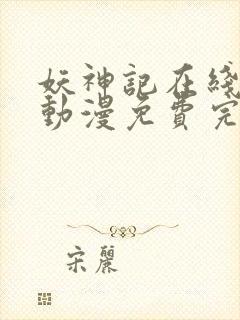 妖神記在綫
動漫免費完
宋麗